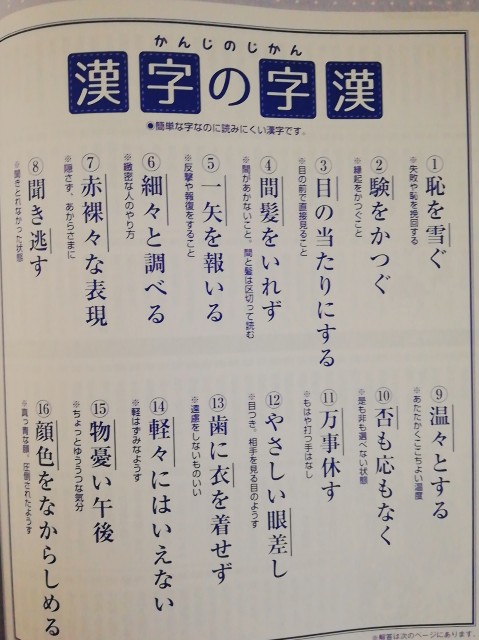 かんじのじかん
漢字の字漢
●簡単な字なのに読みにくい漢字です。
①恥を雪ぐ
※失敗や恥を挽回する
②験をかつぐ
※縁起をかつぐこと
③目の当たりにする
※目の前で直接見ること
④間髪をいれず
※間があかないこと。間と髪は区切って読む
⑤一矢を報いる
※反撃や報復をすること
⑥細々と調べる
※緻密な人のやり方
⑦赤裸々な表現
※隠さず、あからさまに
⑧聞き逃す
※聞きとれなかった状態
⑨温々とする
※あたたかくここちよい温度
⑩否も応もなく
※是も非も選べない状態
⑪万事休す
※もはや打つ手はなし
⑫やさしい眼差し
※目つき。相手を見る目のようす
⑬歯に衣を着せず
※遠慮をしないものいい
⑭軽々にはいえない
※軽はずみなようす
⑮物憂い午後
※ちょっとゆううつな気分
⑯顔色をなからしめる
※真っ青な顔。圧倒されたようす
※解答は次のページにあります。